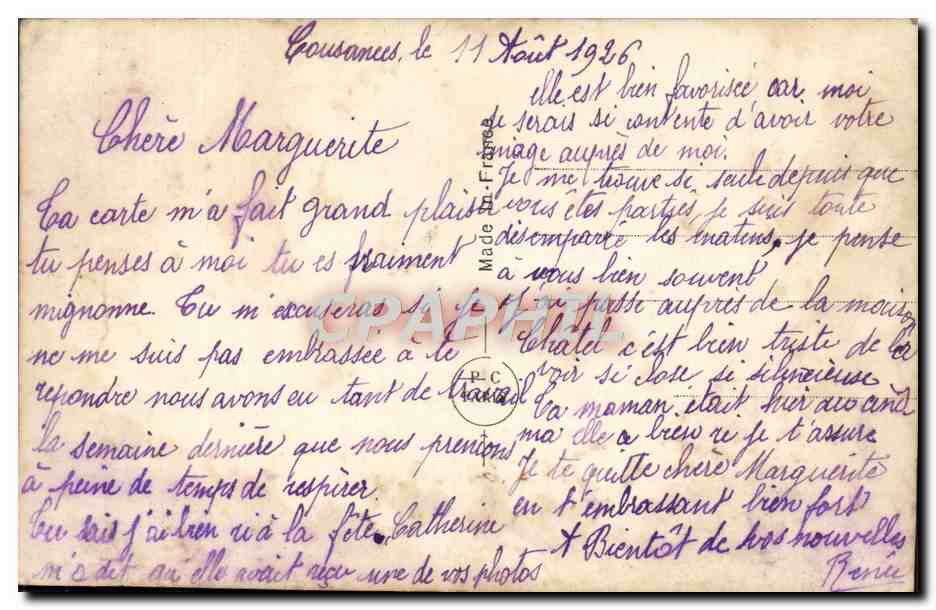 Cousances, le 11 Août 1926
Chère Marguerite
Ta carte m'a fait grand plaisir
tu penses à moi tu es fraiment
mignonne. Tu m'excuseras si je
ne me suis pas embrassée à te
repondre nous avons eu tant de travail
la semaine dernière que nous prenions
à peine de temps de respirer.
Tu sais j'ai bien ri à la fête. Catherine
m'a dit qu'elle avait reçu une de vos photos
elle est bien favorisée car moi
je serais si contente d'avoir votre
image auprès de moi.
Je me trouve si seule depuis que
vous êtes parties je suis toute
désemparée les matins, je pense
à vous bien souvent
passe auprès de la maison
Chalet c'est bien triste de la
voir si close si silencieuse
Ta maman était hier au ciné
ma elle a bien ri je t'assure
Je te quitte chère Marguerite
en t'embrassant bien fort
A Bientôt de vos nouvelles
Renée
Made-in-France
CPAPHIL
P-C
PARIS